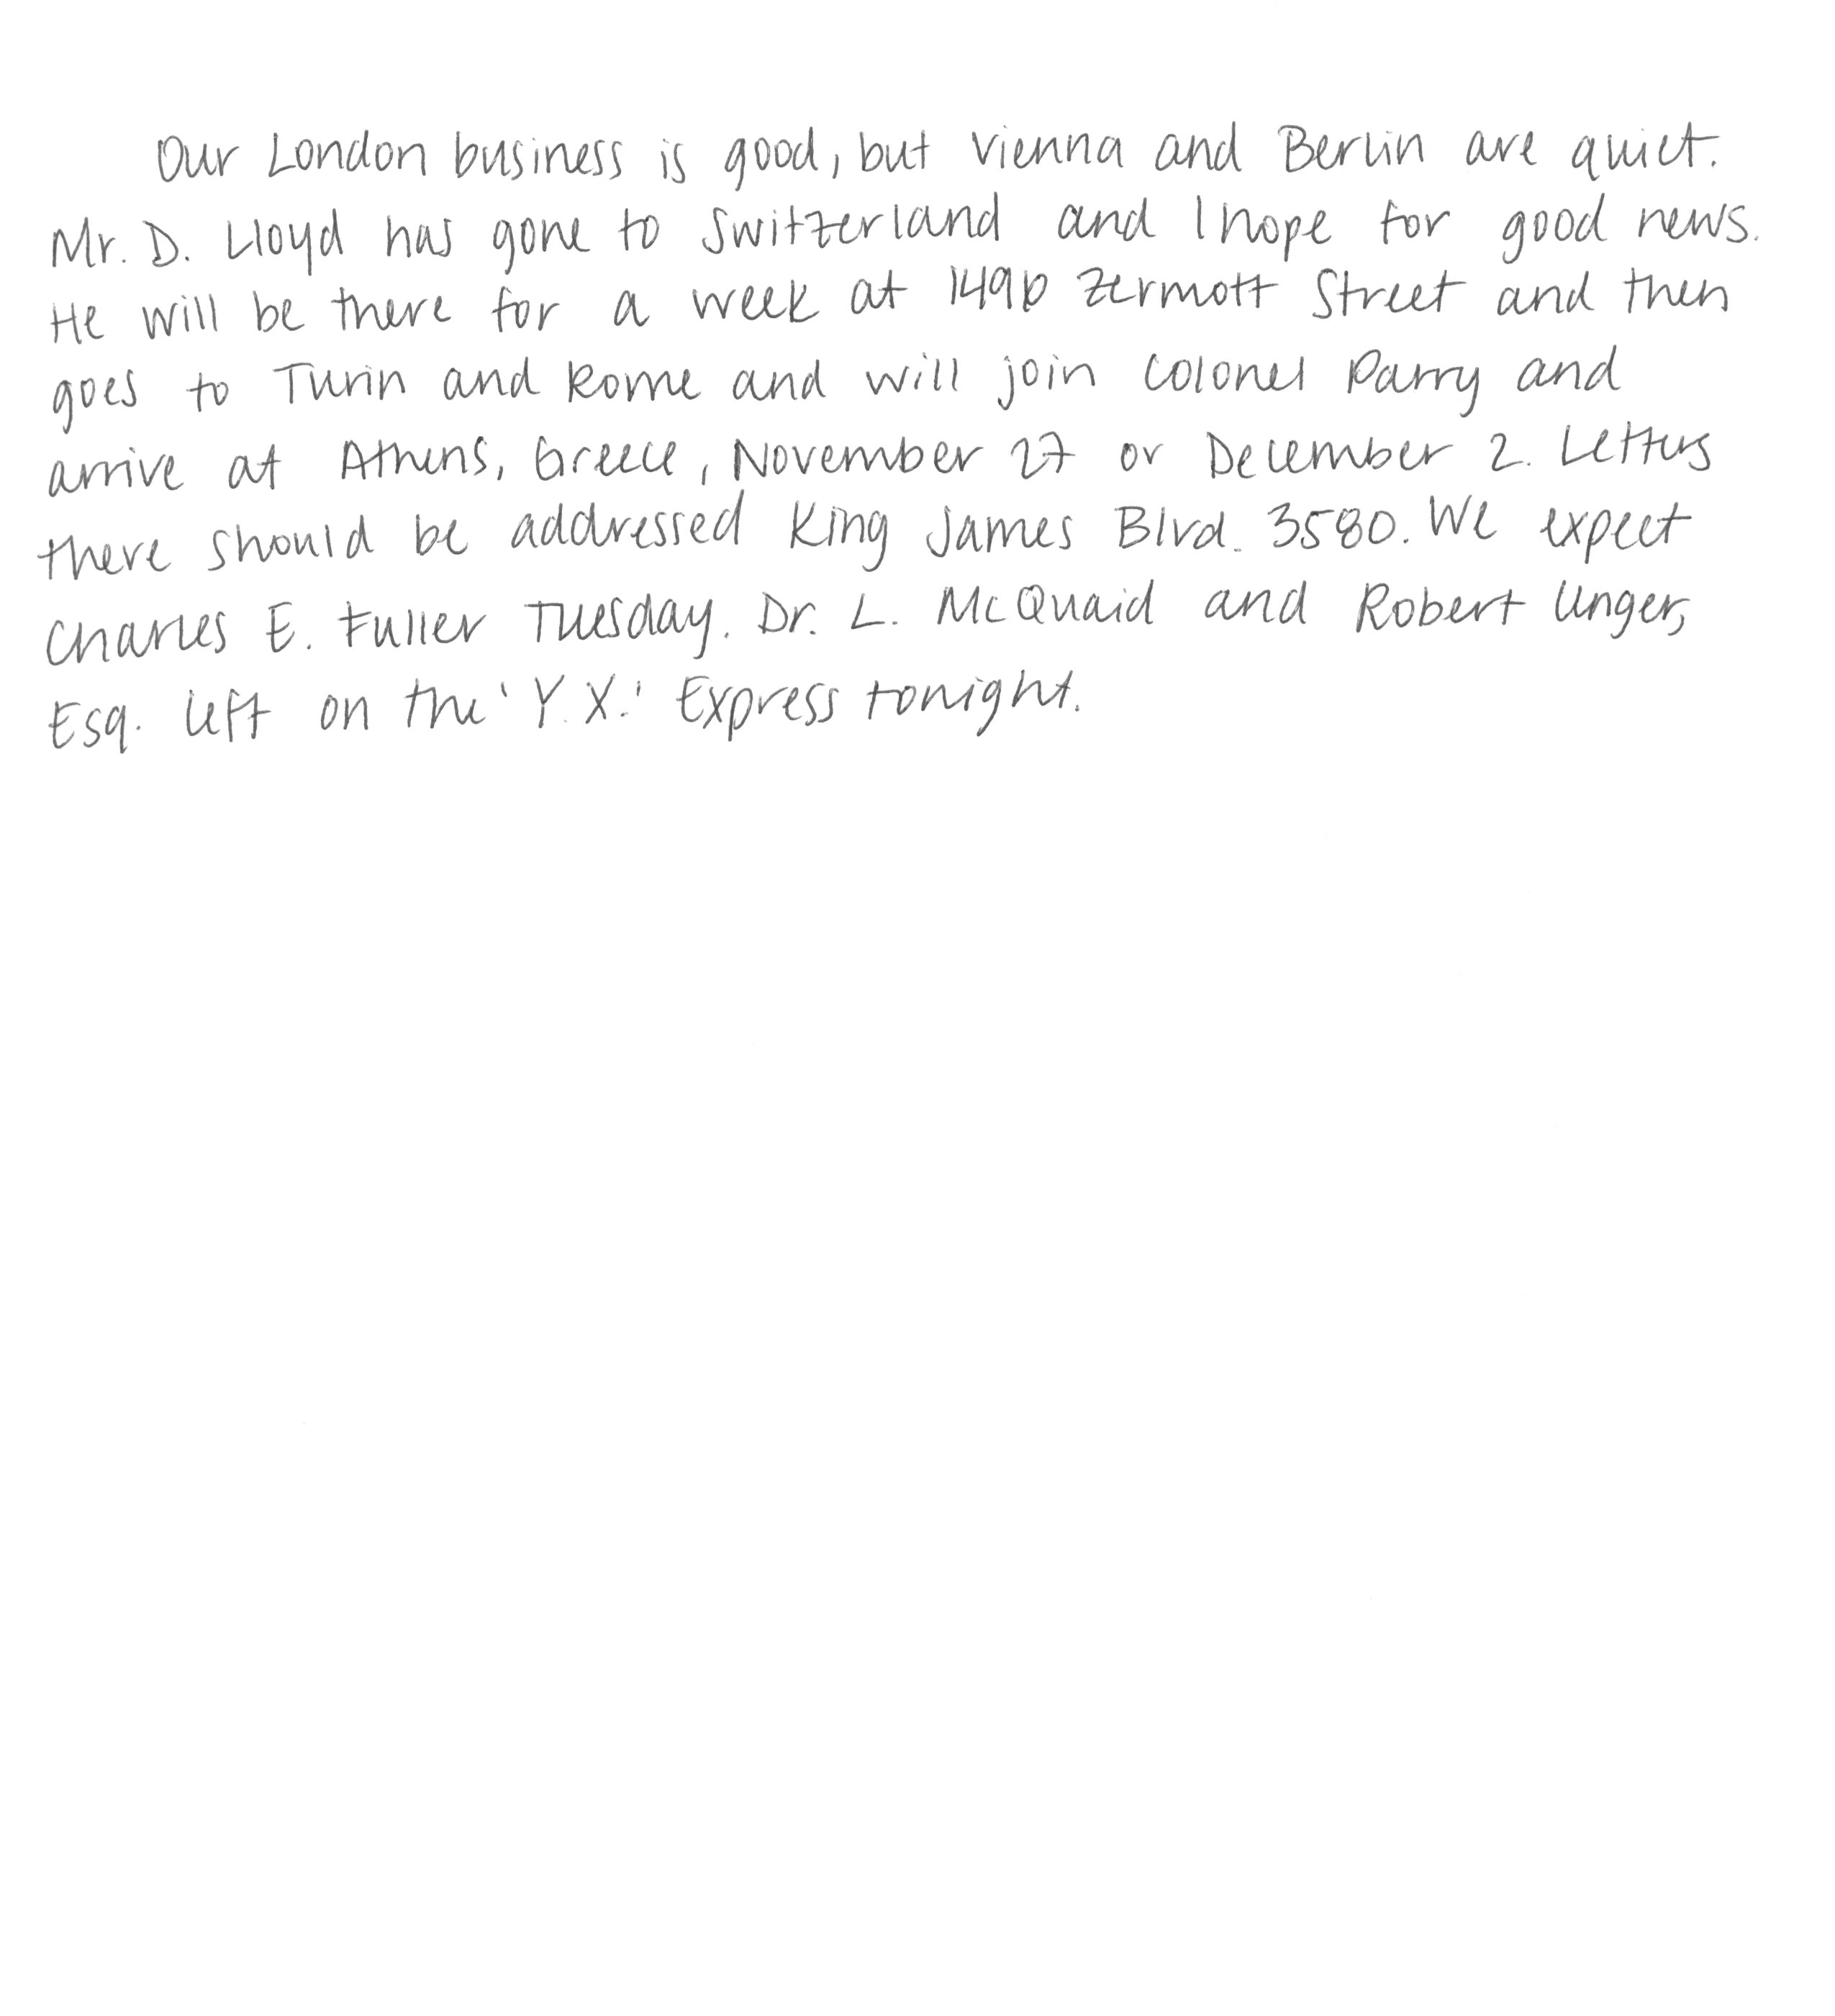 Our London business is good, but Vienna and Berlin are quiet.
Mr. D. Lloyd has gone to Switzerland and I hope for good news.
He will be there for a week at 1496 Zermott Street and then
goes to Turin and Rome and will join Colonel Parry and
arrive at Athens, Greece, November 27 or December 2. Letters
there should be addressed King James Blvd. 3580. We expect
Charles E. Fuller Tuesday. Dr. L. McQuaid and Robert Unger,
Esq. left on the 'Y.X.' Express tonight.